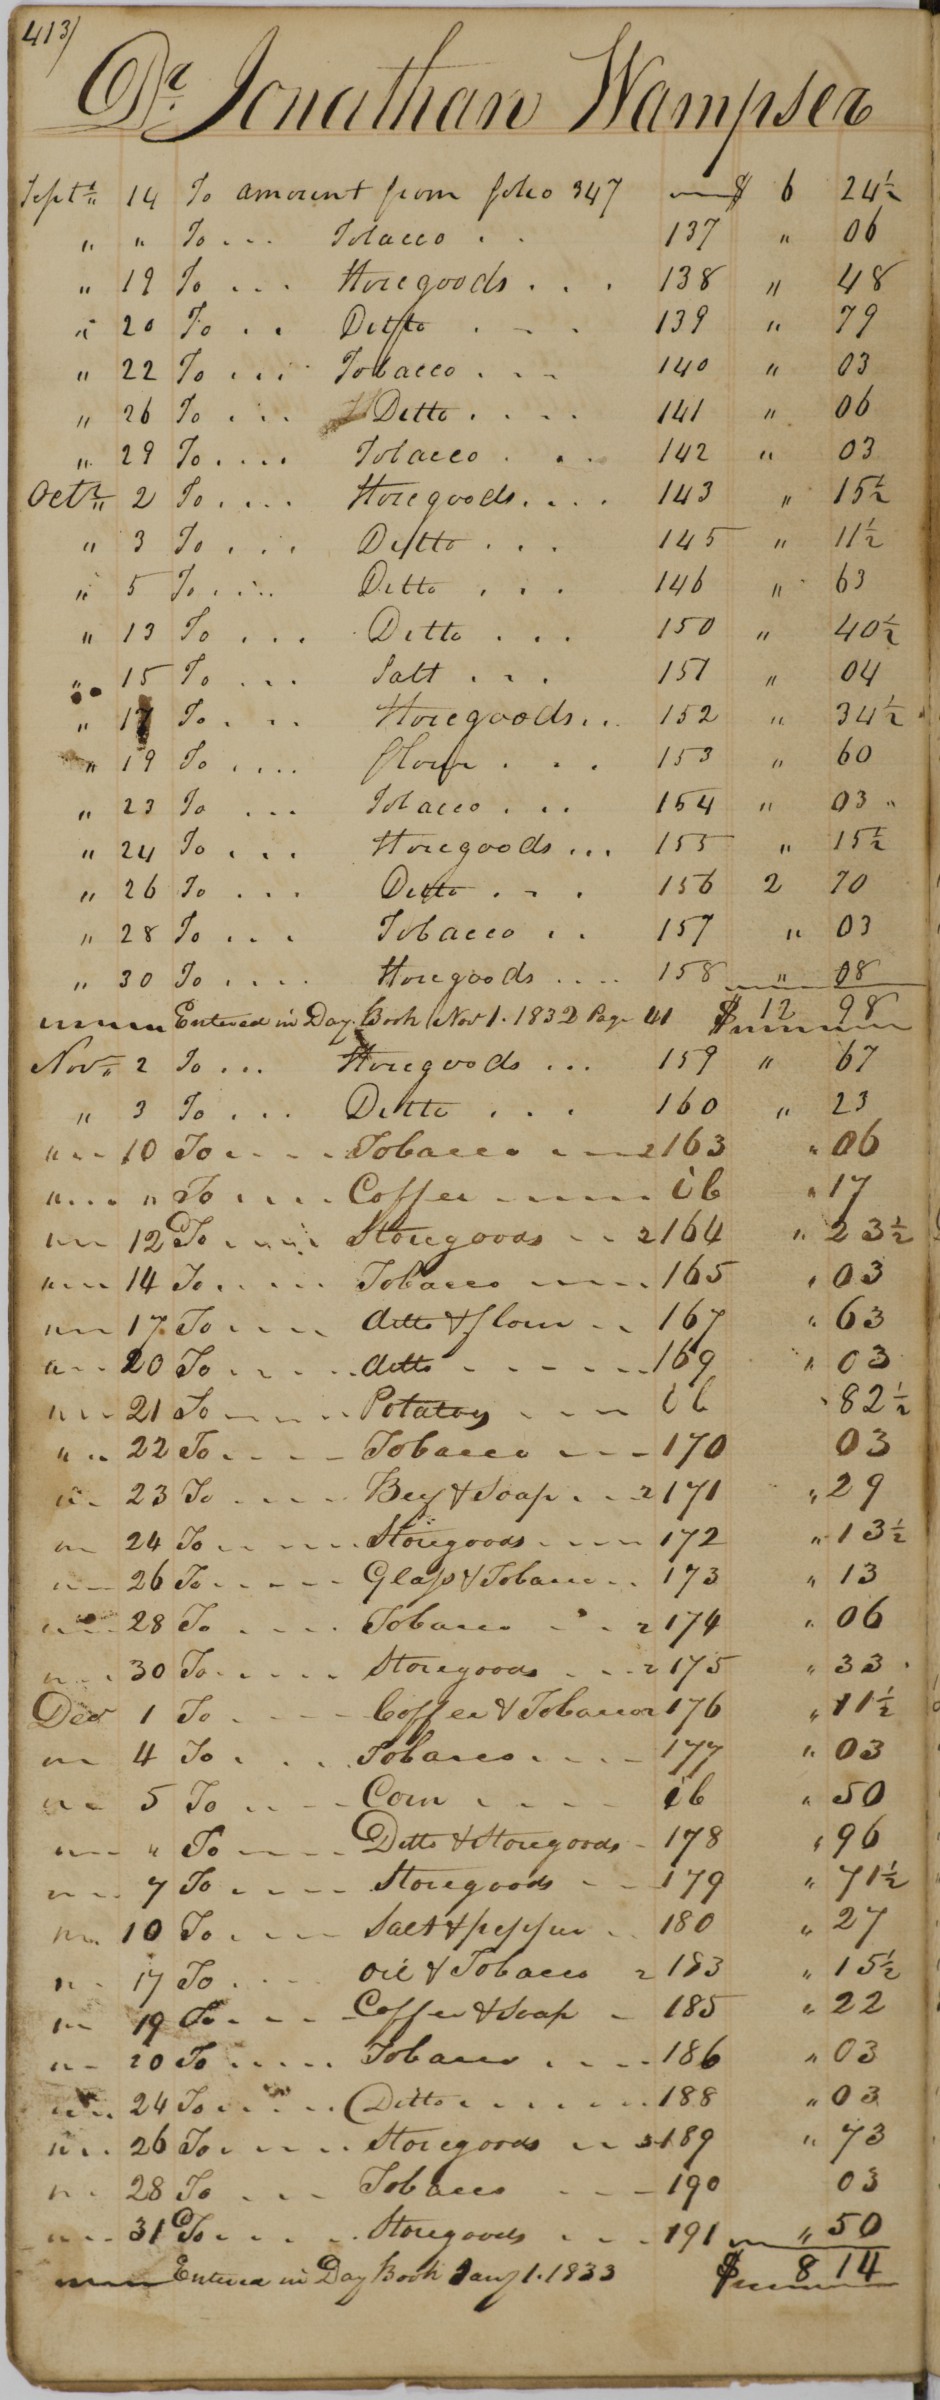 413)
Dr. Jonathan Wampser
Septr. 14 To amount from folio 347 $ 6 24½
" " To ... Tobacco .. 137 " 06
" 19 To ... Storegoods ... 138 " 48
" 20 To .. Ditto ... 139 " 79
" 22 To ... Tobacco ... 140 " 03
" 26 To ... Ditto .... 141 " 06
" 29 To .... Tobacco ... 142 " 03
Octr. 2 To .... Storegoods .... 143 " 15½
" 3 To ... Ditto ... 145 " 11½
" 5 To .... Ditto ... 146 " 63
" 13 To ... Ditto ... 150 " 40½
" 15 To ... Salt ... 151 " 04
" 17 To ... Storegoods .. 152 " 34½
" 19 To .... flour ... 153 " 60
" 23 To ... Tobacco ... 154 " 03 "
" 24 To ... Storegoods ... 155 " 15½
" 26 To ... Ditto ... 156 2 70
" 28 To ... Tobacco .. 157 " 03
" 30 To .... Storegoods .... 158 " 08
Entered in Day Book Nov 1. 1832 Page 41 $ 12 98
Nov. 2 To ... Storegoods ... 159 " 67
" 3 To ... Ditto ... 160 " 23
" 10 To .... Tobacco 163 " 06
" " To .... Coffee ib " 17
" 12 To .... Storegoods 164 " 23½
" 14 To .... Tobacco 165 " 03
" 17 To .... ditto & flour .. 167 " 63
" 20 To .... ditto 169 " 03
" 21 To .... Potatoes ib " 82½
" 22 To .... Tobacco 170 03
" 23 To .... Bey & Soap 171 " 29
" 24 To .... Storegoods 172 " 13½
" 26 To .... Glass & Tobacco .. 173 " 13
" 28 To .... Tobacco 174 " 06
" 30 To .... Storegoods 175 " 33
Dec 1 To .... Coffee & Tobacco 176 " 11½
" 4 To ... Tobacco .... 177 " 03
" 5 To .... Corn .... ib " 50
" " To .... Ditto & Storegoods 178 " 96
" 7 To .... Storegoods 179 " 71½
" 10 To .... Salt & pepper .. 180 " 27
" 17 To .... Oil & Tobacco 183 " 15½
" 19 To .... Coffee & Soap 185 " 22
" 20 To .... Tobacco .... 186 " 03
" 24 To .... Ditto .... 188 " 03
" 26 To .... Storegoods 189 " 73
" 28 To ... Tobacco 190 03
" 31 To .... Storegoods 191 " 50
Entered in Day Book Jany 1. 1833 $ 8 14